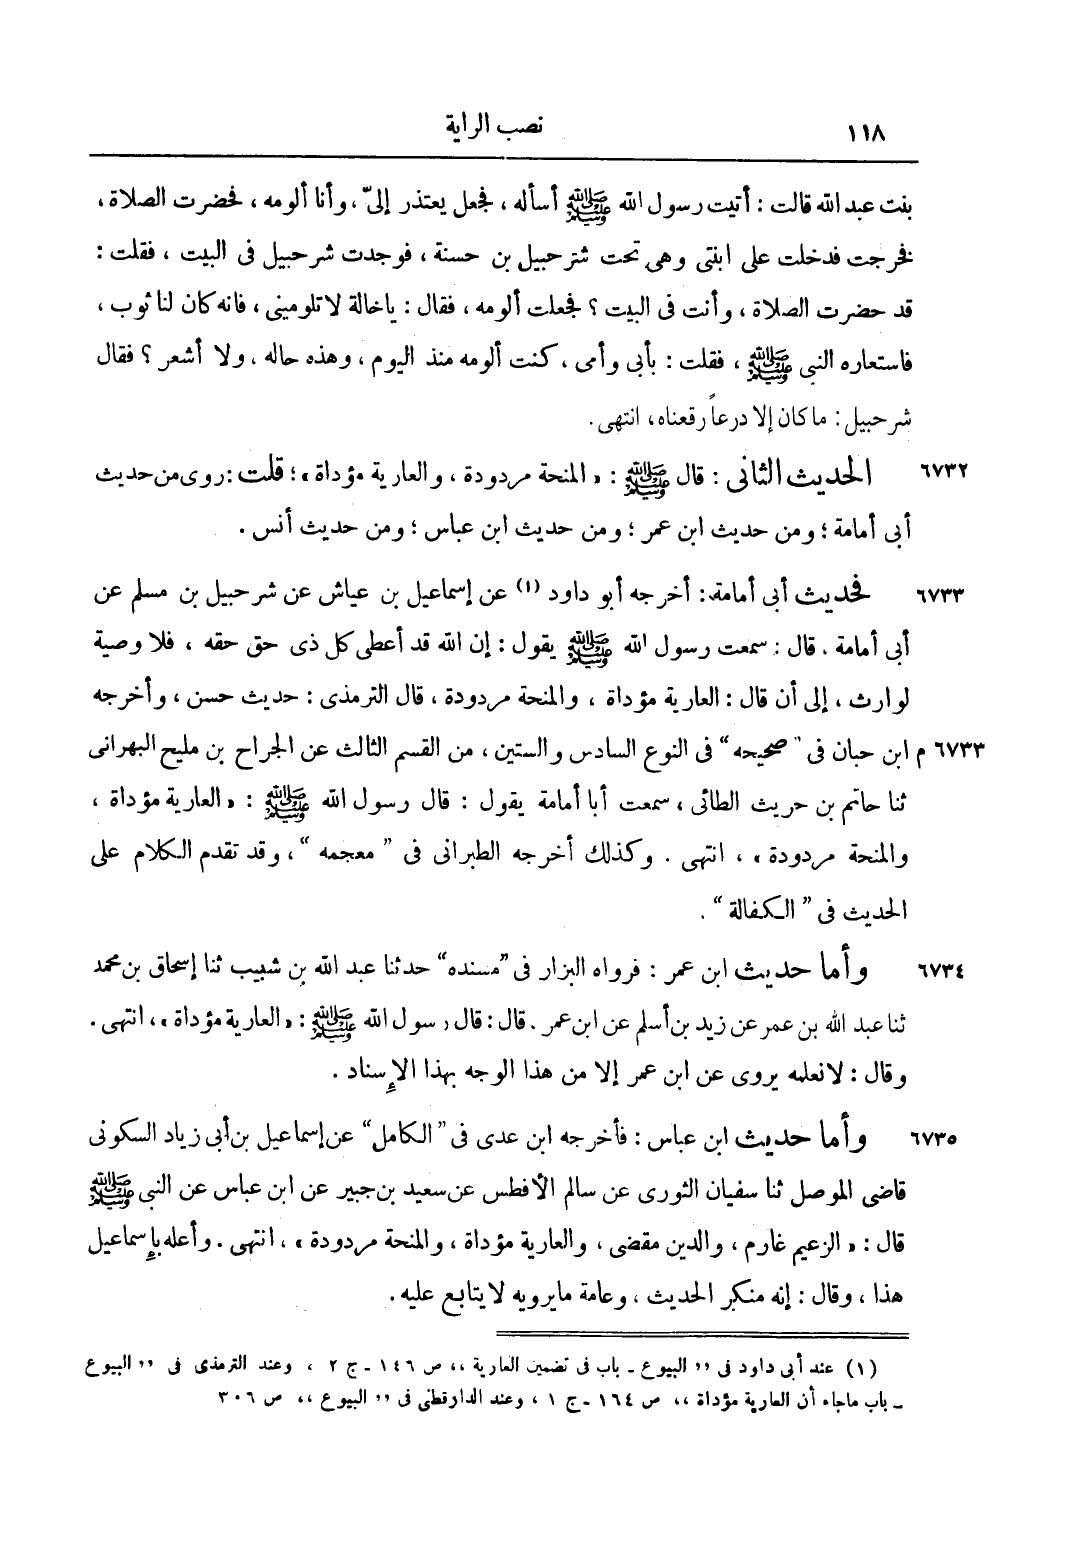 ١١٨ نصب الراية
بنت عبد الله قالت : أتيت رسول الله ﷺ أسأله ، فجعل يعتذر إلىّ ، وأنا ألومه ، فحضرت الصلاة ،
فخرجت فدخلت على ابنتى وهى تحت شرحبيل بن حسنة ، فوجدت شرحبيل فى البيت ، فقلت :
قد حضرت الصلاة ، وأنت فى البيت ؟ فجعلت ألومه ، فقال : ياخالة لاتلومينى ، فانه كان لنا ثوب ،
فاستعاره النبى ﷺ ، فقلت : بأبى وأمى ، كنت ألومه منذ اليوم ، وهذه حاله ، ولا أشعر ؟ فقال
شرحبيل : ماكان إلا درعاً رقعناه ، انتهى .
٦٧٣٢ الحديث الثانى : قال ﷺ : « المنحة مردودة ، والعارية مؤداة » ؛ قلت : روى من حديث
أبى أمامة ؛ ومن حديث ابن عمر ؛ ومن حديث ابن عباس ؛ ومن حديث أنس .
٦٧٣٣ فحديث أبى أمامة : أخرجه أبو داود (١) عن إسماعيل بن عياش عن شرحبيل بن مسلم عن
أبى أمامة . قال : سمعت رسول الله ﷺ يقول : إن الله قد أعطى كل ذى حق حقه ، فلا وصية
لوارث ، إلى أن قال : العارية مؤداة ، والمنحة مردودة ، قال الترمذى : حديث حسن ، وأخرجه
٦٧٣٣ م ابن حبان فى " صحيحه " فى النوع السادس والستين ، من القسم الثالث عن الجراح بن مليح البهرانى
ثنا حاتم بن حريث الطائى ، سمعت أبا أمامة يقول : قال رسول الله ﷺ : « العارية مؤداة ،
والمنحة مردودة » ، انتهى . وكذلك أخرجه الطبرانى فى " معجمه " ، وقد تقدم الكلام على
الحديث فى " الكفالة " .
٦٧٣٤ وأما حديث ابن عمر : فرواه البزار فى "مسنده" حدثنا عبد الله بن شبيب ثنا إسحاق بن محمد
ثنا عبد الله بن عمر عن زيد بن أسلم عن ابن عمر . قال : قال رسول الله ﷺ : « العارية مؤداة » ، انتهى .
وقال : لانعلمه يروى عن ابن عمر إلا من هذا الوجه بهذا الإسناد .
٦٧٣٥ وأما حديث ابن عباس : فأخرجه ابن عدى فى " الكامل " عن إسماعيل بن أبى زياد السكونى
قاضى الموصل ثنا سفيان الثورى عن سالم الأفطس عن سعيد بن جبير عن ابن عباس عن النبى ﷺ
قال : « الزعيم غارم ، والدين مقضى ، والعارية مؤداة ، والمنحة مردودة » ، انتهى . وأعله بإسماعيل
هذا ، وقال : إنه منكر الحديث ، وعامة مايرويه لايتابع عليه .
(١) عند أبى داود فى ,, البيوع ـ باب فى تضمين العارية ,, ص ١٤٦ ـ ج ٢ ، وعند الترمذى فى ,, البيوع
ـ باب ماجاء أن العارية مؤداة ,, ص ١٦٤ ـ ج ١ ، وعند الدارقطنى فى ,, البيوع ,, ص ٣٠٦